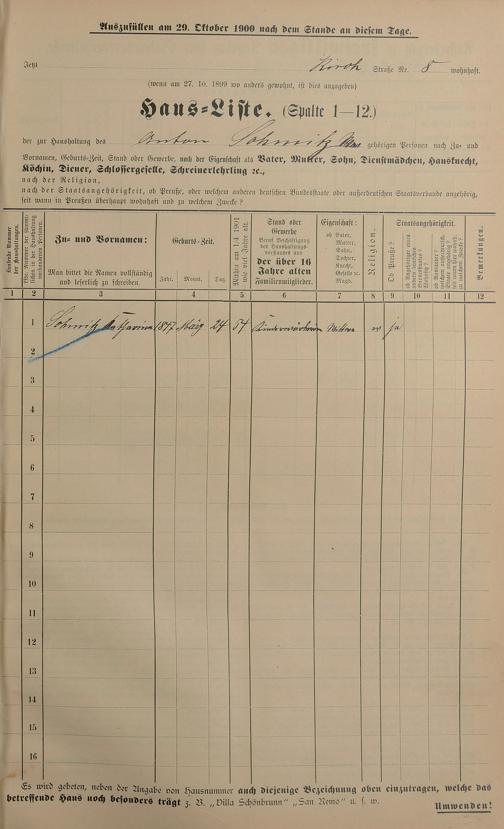 Auszufüllen am 29. Oktober 1900 nach dem Stande an diesem Tage.
Jetzt Kirch Straße Nr. 8 wohnhaft.
(wenn am 27. 10. 1899 wo anders gewohnt, ist dies anzugeben)
Haus-Liste. (Spalte 1—12.)
der zur Haushaltung des Anton Schmitz gehörigen Personen nach Zu- und
Vornamen, Geburts-Zeit, Stand oder Gewerbe, nach der Eigenschaft als Vater, Mutter, Sohn, Dienstmädchen, Hausknecht,
Köchin, Diener, Schlossergeselle, Schreinerlehrling ꝛc.,
nach der Religion,
nach der Staatsangehörigkeit, ob Preuße, oder welchem anderen deutschen Bundesstaate oder außerdeutschen Staatsverbande angehörig,
seit wann in Preußen überhaupt wohnhaft und zu welchem Zwecke?
Laufende Nummer der Haushaltungen.
Zu- und Vornamen:
Man bittet die Namen vollständig
und leserlich zu schreiben.
Geburts-Zeit.
Jahr. Monat. Tag.
Mithin am 1.4. 1901
wie viel Jahre alt.
Stand oder
Gewerbe
der über 16
Jahre alten
Familienmitglieder.
Eigenschaft:
ob Vater,
Mutter,
Sohn,
Tochter,
Knecht,
Geselle ꝛc.
Magd.
Religion.
Staatsangehörigkeit.
Ob Preuße?
Bemerkungen.
1 2 3 4 5 6 7 8 9 10 11 12
1 Schmitz Katharina März 24 54 ja
2
3
4
5
6
7
8
9
10
11
12
13
14
15
16
Es wird gebeten, neben der Angabe von Hausnummer auch diejenige Bezeichnung oben einzutragen, welche das
betreffende Haus noch besonders trägt z. B. „Villa Schönbrunn" „San Remo" u. s. w.
Umwenden!